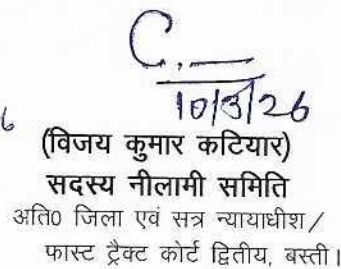 10/3/26
(विजय कुमार कटियार)
सदस्य नीलामी समिति
अति0 जिला एवं सत्र न्यायाधीश/
फास्ट ट्रैक्ट कोर्ट द्वितीय, बस्ती।